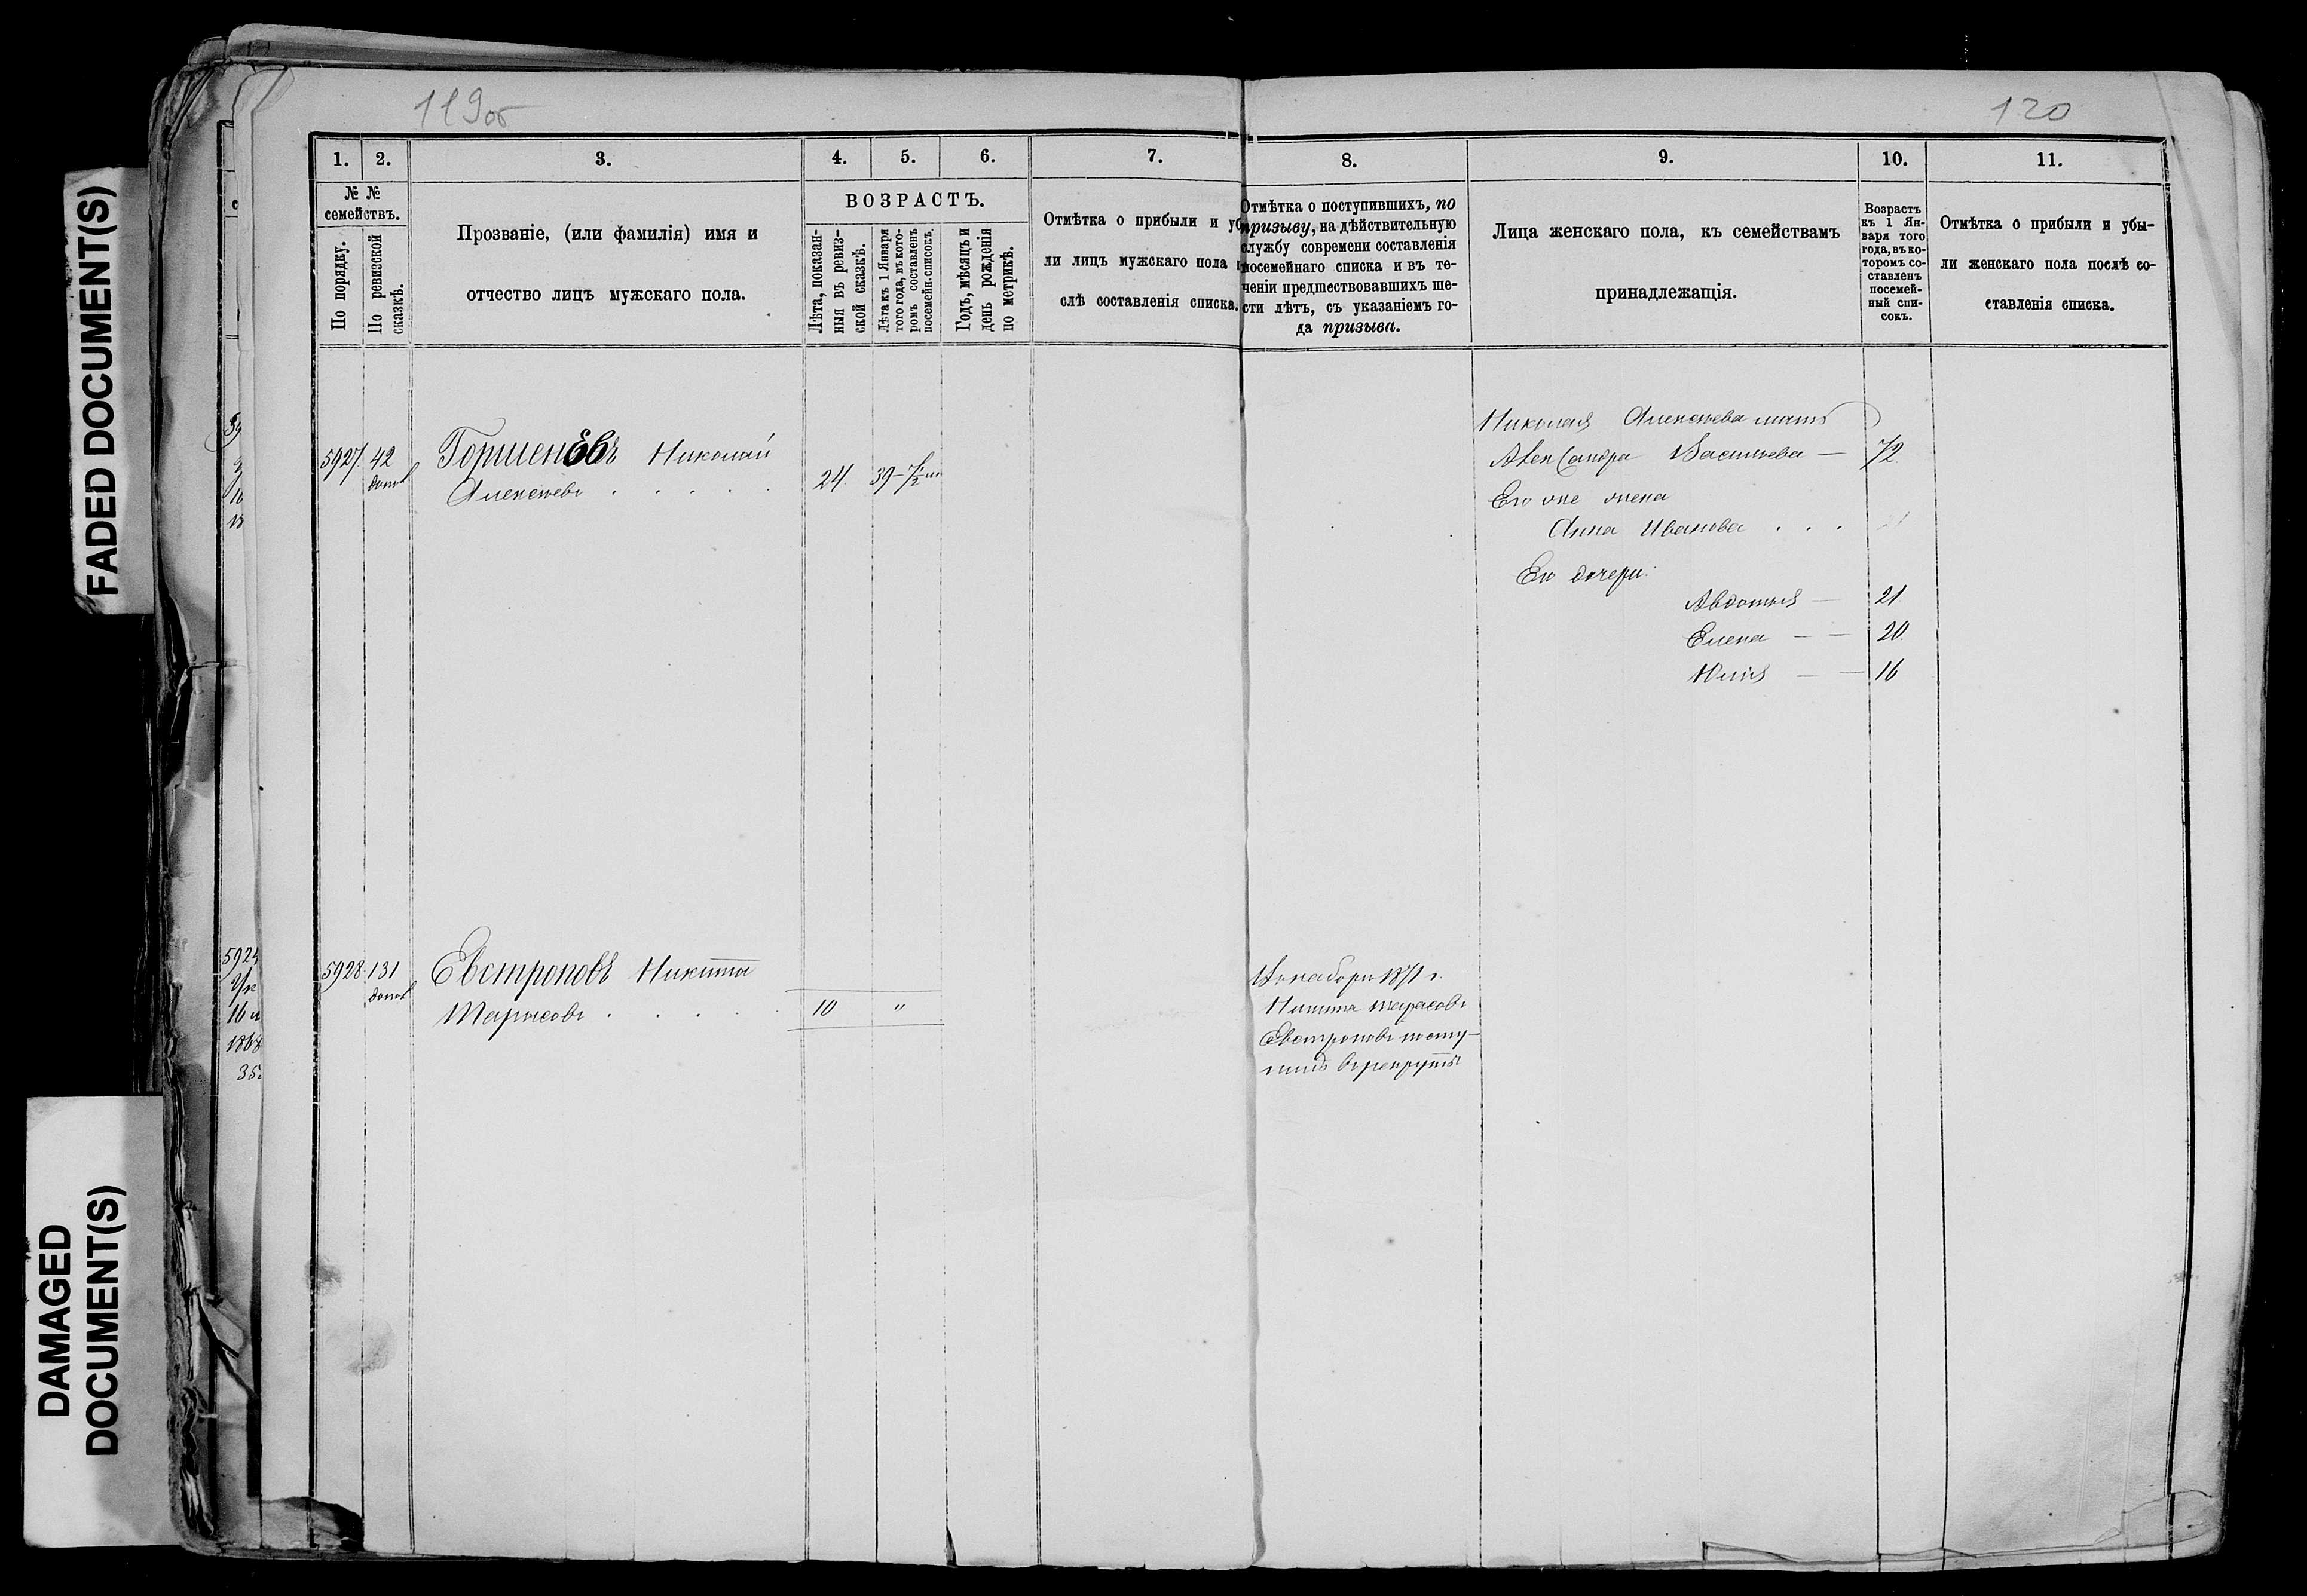 119об
120
FADED DOCUMENT(S)
DAMAGED
DOCUMENT(S)
1.
2.
3.
4.
5.
6.
7.
8.
9.
10.
11.
№ №
семействъ.
По порядку.
По ревизской
сказкѣ.
Прозваніе, (или фамилія) имя и
отчество лицъ мужскаго пола.
ВОЗРАСТЪ.
Лѣта, показан-
ныя въ ревиз-
ской сказкѣ.
Лѣта къ 1 Января
того года, въ кото-
ромъ составленъ
посемейн. списокъ.
Годъ, мѣсяцъ и
день рожденія
по метрикѣ.
Отмѣтка о прибыли и уб
ли лицъ мужскаго пола п
слѣ составленія списка.
Отмѣтка о поступившихъ, по
призыву, на дѣйствительную
службу современи составленія
посемейнаго списка и въ те-
ченіи предшествовавшихъ ше-
сти лѣтъ, съ указаніемъ го-
да призыва.
Лица женскаго пола, къ семействамъ
принадлежащія.
Возрастъ
къ 1 Ян-
варя того
года, въ ко-
торомъ со-
ставленъ
посемей-
ный спи-
сокъ.
Отмѣтка о прибыли и убы-
ли женскаго пола послѣ со-
ставленія списка.
5927 42 Горшенёвъ Николай
Алексѣевъ 24. 39
Николая Алексѣева мать
Александра Васильева — 72.
Его же жена
Анна Иванова . . .
Его дочери:
Авдотья — 21
Елена — — 20.
Юлія — — 16
5924
16
1868
35
5928 131 Евстроповъ Никита
Тарасовъ 10 "
Декабря 1871 г.
Никита Тарасовъ
Евстроповъ посту-
пилъ в рекруты